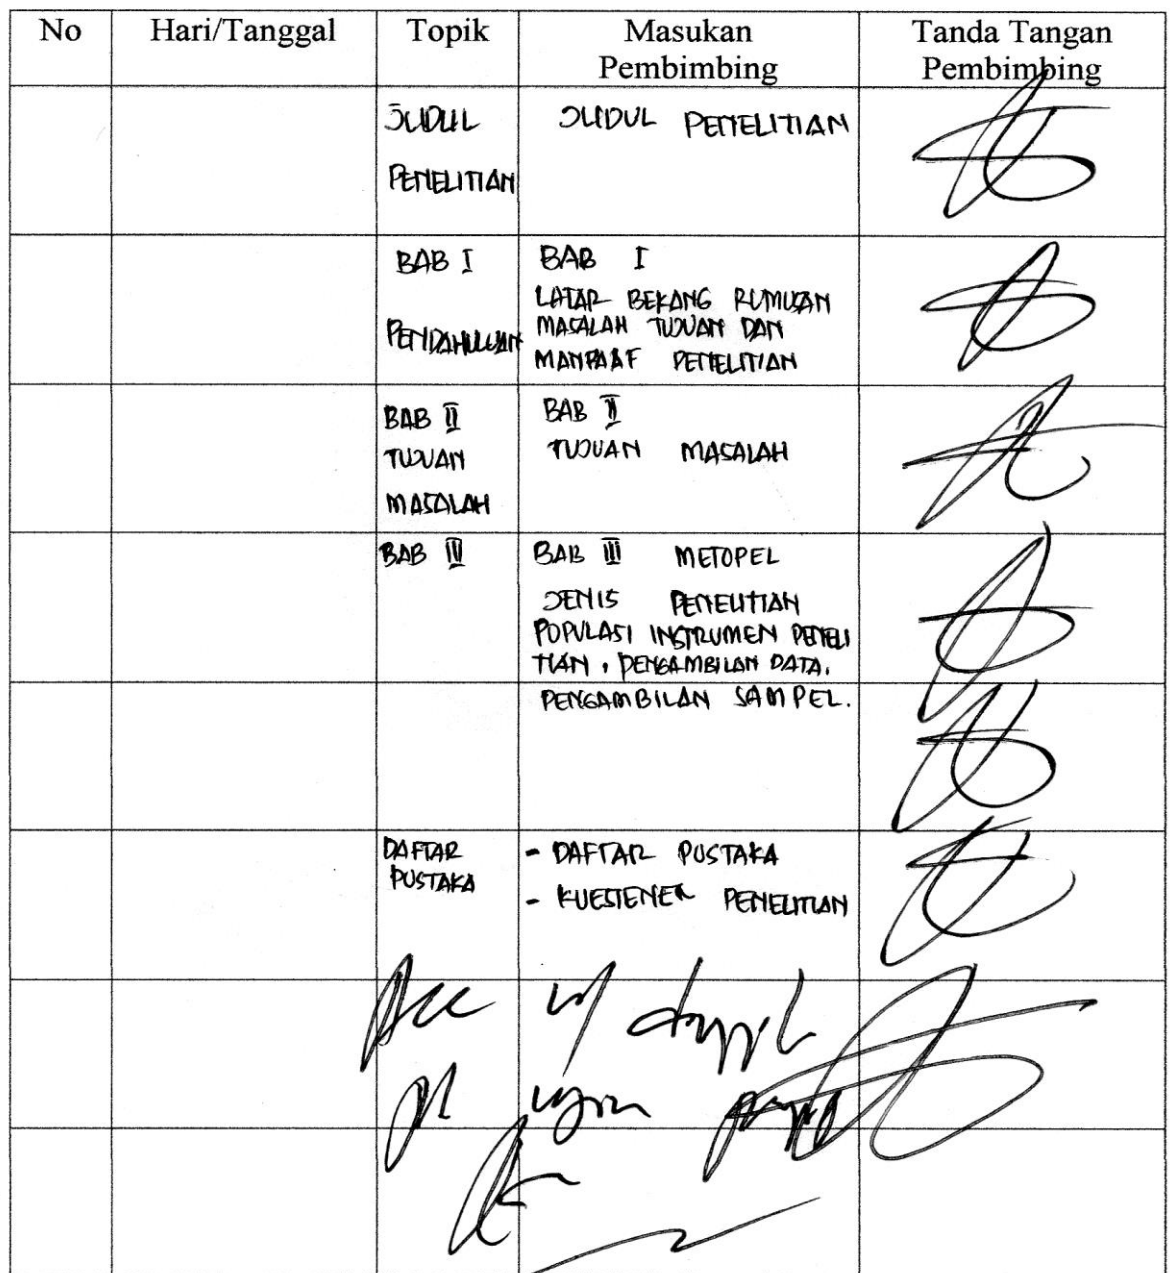 No Hari/Tanggal Topik Masukan Pembimbing Tanda Tangan Pembimbing
JUDUL PENELITIAN JUDUL PENELITIAN
BAB I PENDAHULUAN
BAB I
LATAR BEKANG RUMUSAN
MASALAH TUJUAN DAN
MANFAAF PENELITIAN
BAB II
TUJUAN
MASALAH
BAB II
TUJUAN MASALAH
BAB III
BAB III METOPEL
JENIS PENELITIAN
POPULASI INSTRUMEN PENELI
TIAN, PENGAMBILAN DATA,
PENGAMBILAN SAMPEL.
DAFTAR
PUSTAKA
- DAFTAR PUSTAKA
- KUESTENER PENELITIAN
Acc